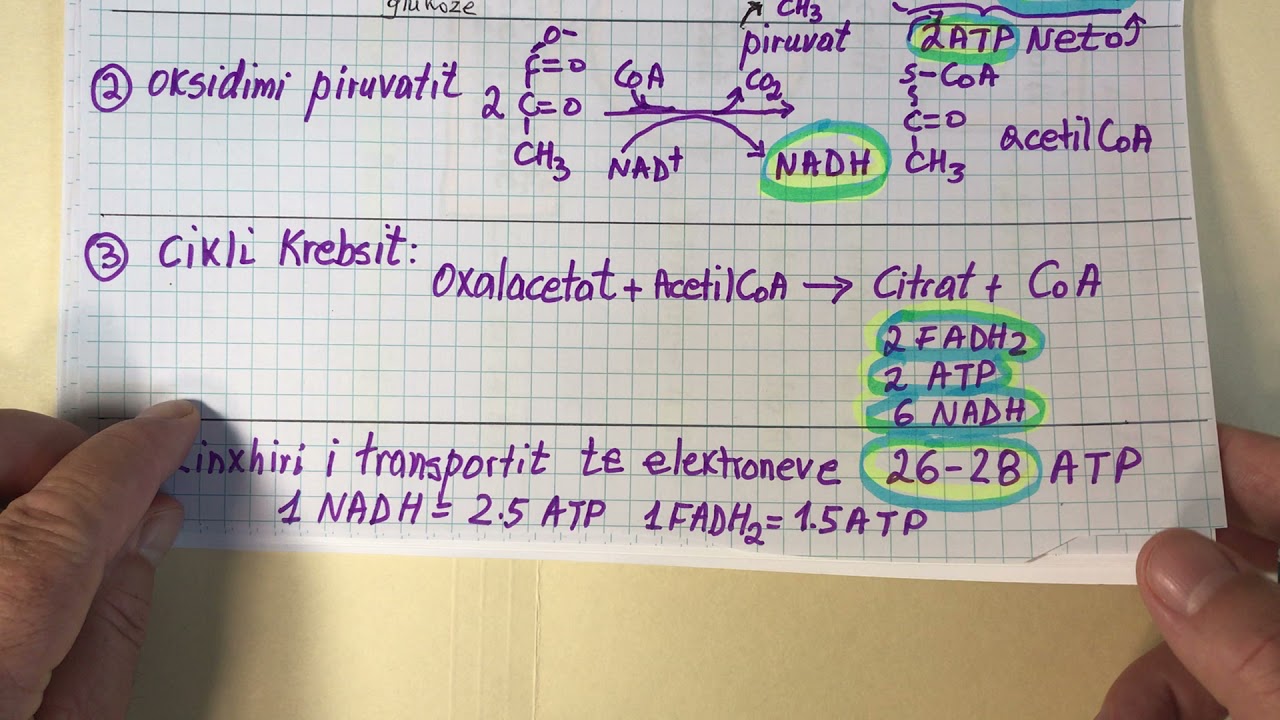 glukoze
CH3
piruvat
2ATP Neto
② Oksidimi piruvatit
2
O-
C=O
C=O
CH3
CoA
CO2
NAD+
NADH
S-CoA
C=O
CH3
acetil CoA
③ Cikli Krebsit:
Oxalacetat + Acetil CoA → Citrat + CoA
2 FADH2
2 ATP
6 NADH
inxhiri i transportit te elektroneve 26-28 ATP
1 NADH = 2.5 ATP 1 FADH2 = 1.5 ATP